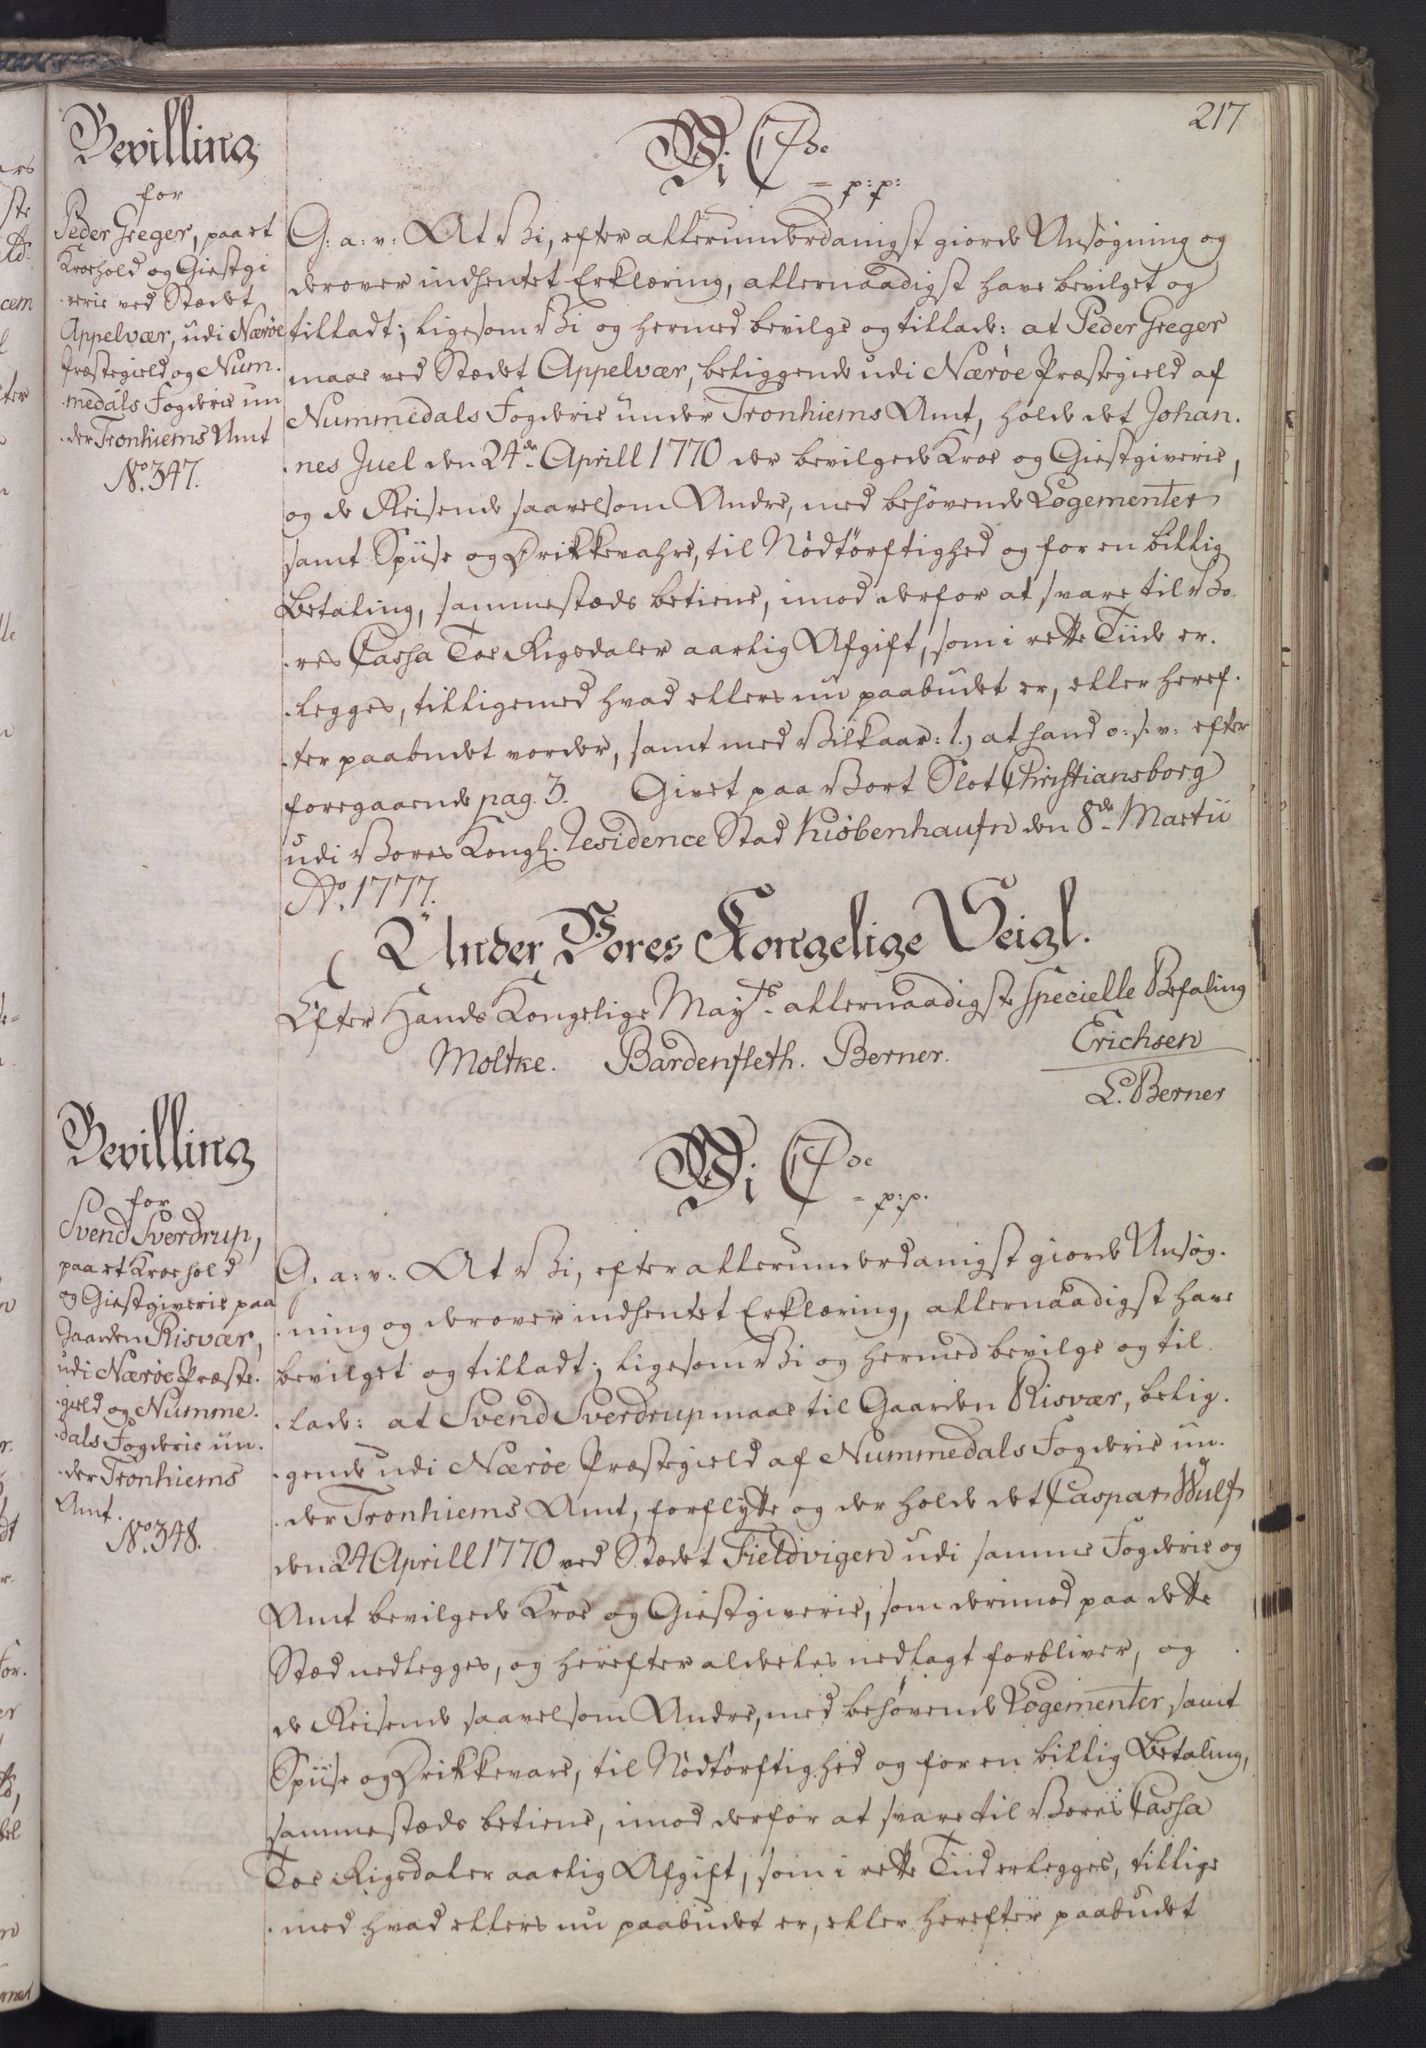 217
Bevilling
for
Peder Greger, paa et
Kroehold og Giestgi
verie ved Stædet
Appelvær, udi Nærøe
Præstegield og Num-
-medals Fogderie un
-der Tronhiems Amt
No. 347.
Vi C 7de
= p: p:
G: a: v: At Vi, efter allerunderdanigst giorde Ansøgning og
derover indhentet Erklæring, allernaadigst have bevilget og
tilladt; ligesom Vi og hermed bevilge og tillade: at Peder Greger
maae ved Stædet Appelvær, beliggende udi Nærøe Præstegield af
Nummedals Fogderie under Tronhiems Amt, holde det Johan-
-nes Juel den 24de Aprill 1770 der bevilgede Kroe og Giestgiverie,
og de Reisende saavelsom Andre, med behøvende Logementer
samt Spiise og Drikkevahre, til Nödtörftighed og for en billig
Betaling, sammestæds betiene, imod derfor at svare til Vo-
-res Cassa Toe Rigsdaler aarlig Afgift, som i rette Tiide er-
-legges, tilligemed hvad ellers nu paabudet er, eller heref-
-ter paabudet vorder, samt med Vilkaar: 1.) at hand o: s: v: efter
foregaaende pag. 3. Givet paa Vort Slot Christiansborg
udi Vores Kongl. Residence Stad Kiöbenhaufn den 8de Martii
Ao. 1777.
Under Vores Kongelige Seigl.
Efter Hands Kongelige Mayts. allernaadigste specielle Befaling
Moltke. Bardenfleth. Berner. Erichsen
L. Berner
Bevilling
for
Svend Sverdrup,
paa et Kroehold
og Giestgiverie paa
Gaarden Risvær,
udi Nærøe Præste-
-gield og Numme-
-dals Fogderie un-
-der Tronhiems
Amt.
No. 348.
Vi C 7de
= p: p.
G: a: v: At Vi, efter allerunderdanigst giorde Ansøg-
-ning og derover indhentet Erklæring, allernaadigst have
bevilget og tilladt; ligesom Vi og hermed bevilge og til-
-lade: at Svend Sverdrup maae til Gaarden Risvær, belig-
-gende udi Nærøe Præstegield af Nummedals Fogderie un-
-der Tronhiems Amt, forflytte og der holde det Caspar Wulf
den 24 Aprill 1770 ved Stædet Fieldvigen udi samme Fogderie og
Amt bevilgede Kroe og Giestgiverie, som derimod paa dette
Stæd nedlegges, og herefter aldeles nedlagt forbliver, og
de Reisende saavelsom Andre, med behøvende Logementer samt
Spiise og Drikkevare, til Nödtörftighed og for en billig Betaling,
sammestæds betiene, imod derfor at svare til Vores Cassa
Toe Rigsdaler aarlig Afgift, som i rette Tiid erlegges, tillige
-med hvad ellers nu paabudet er, eller herefter paabudet